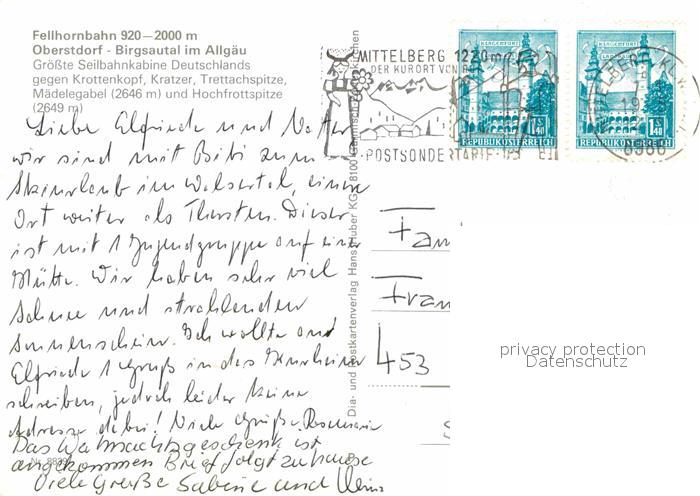 Fellhornbahn 920—2000 m
Oberstdorf - Birgsautal im Allgäu
Größte Seilbahnkabine Deutschlands
gegen Krottenkopf, Kratzer, Trettachspitze,
Mädelegabel (2646 m) und Hochfrottspitze
(2649 m)
Liebe Elfriede und Vater
wir sind mit Bibi zum
Skiurlaub im Walsertal, einen
Ort weiter als Thorsten. Dieser
ist mit 1 Jugendgruppe auf einer
Hütte. Wir haben sehr viel
Schnee und strahlenden
Sonnenschein. Ich wollte an
Elfriede 1 Gruß in das
schreiben, jedoch leider keine
Adresse dabei! Viele Grüße Rosemarie
Das Weihnachtsgeschenk ist
angekommen Brief folgt zuhause
Viele Grüße Sabine und
Dia- und Postkartenverlag Hans Huber KG, 8100 Garmisch-Partenkirchen
MITTELBERG 1220m
DER KURORT VON
POSTSONDERTARIF
REPUBLIK ÖSTERREICH
1.40
REPUBLIK ÖSTERREICH
1.40
Fam
Fran
453
privacy protection
Datenschutz